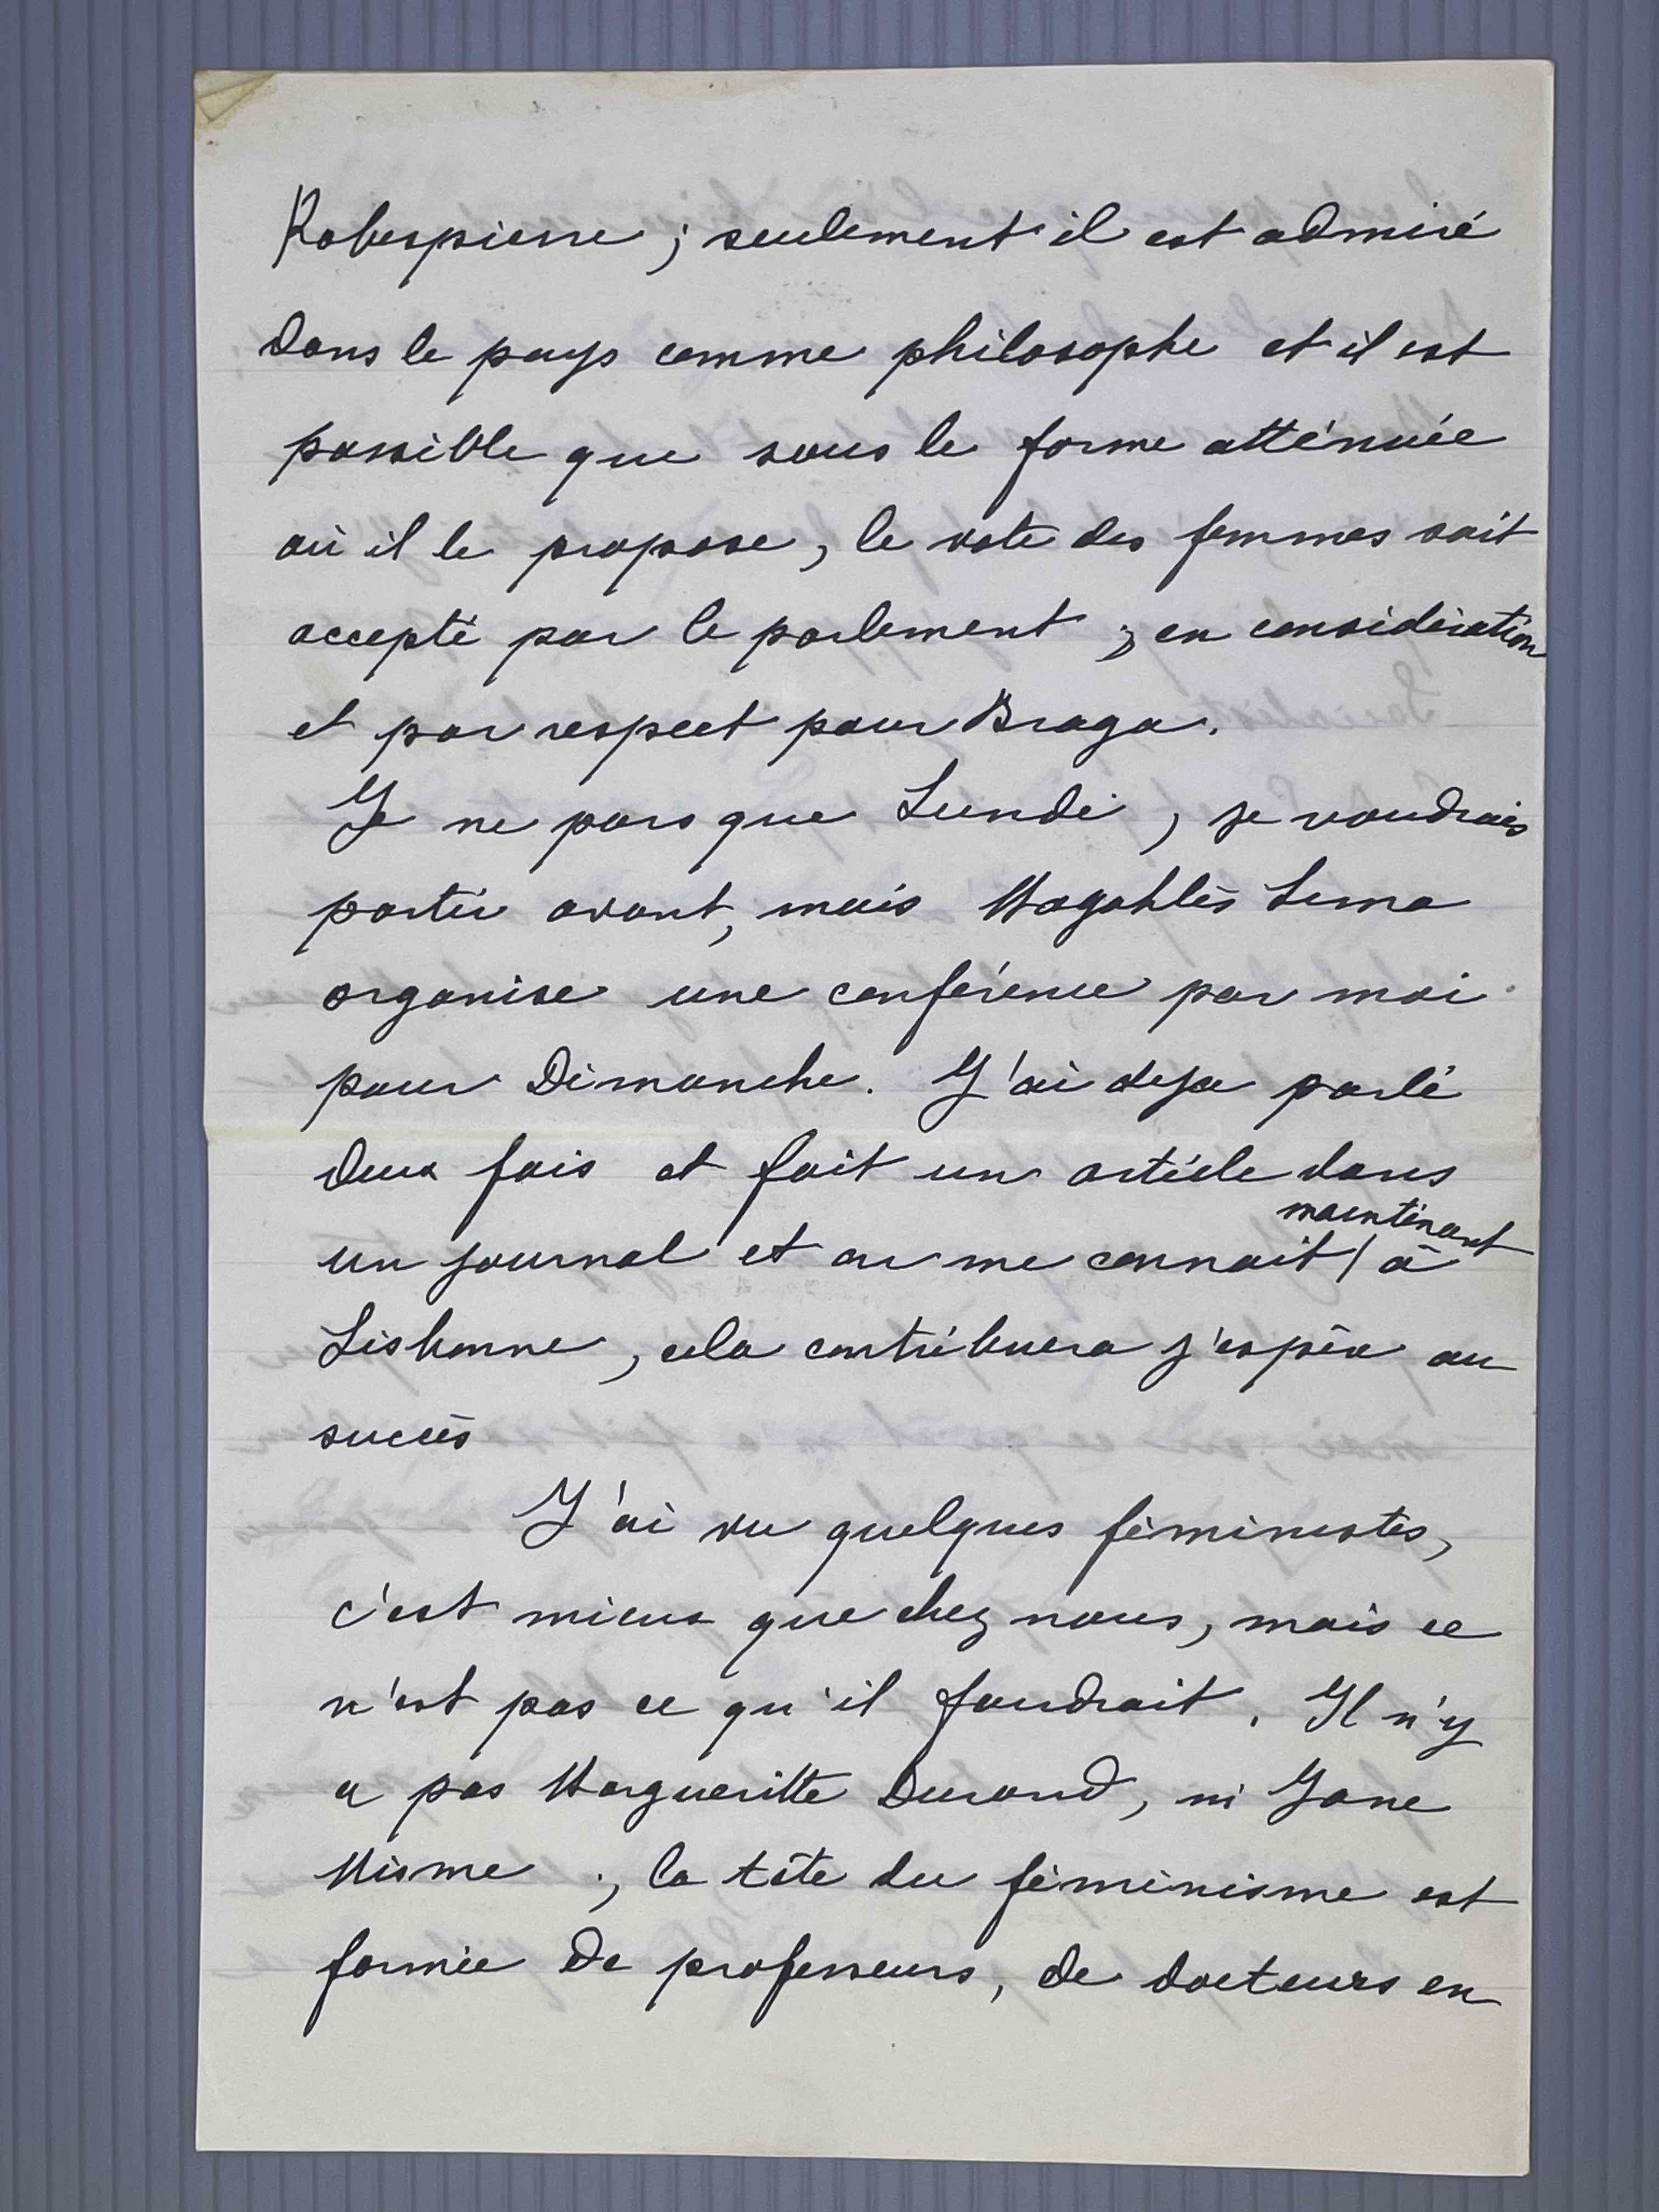 Robespierre ; seulement il est admiré
dans le pays comme philosophe et il est
possible que sous le forme atténuée
où il le propose, le vote des femmes soit
accepté par le parlement ; en considération
et par respect pour Braga.
Je ne pars que Lundi, je voudrais
partir avant, mais Magahlès Lima
organise une conférence par moi
pour Dimanche. J'ai deja parlé
deux fois et fait un article dans
maintenant
un journal et on me connait / à
Lisbonne, cela contribuera j'espère au
succès
J'ai vu quelques féministes,
c'est mieux que chez nous, mais ce
n'est pas ce qu'il faudrait. Il n'y
a pas Margueritte Durand, ni Jane
Misme ; la tête du féminisme est
formée de professeurs, de docteurs en